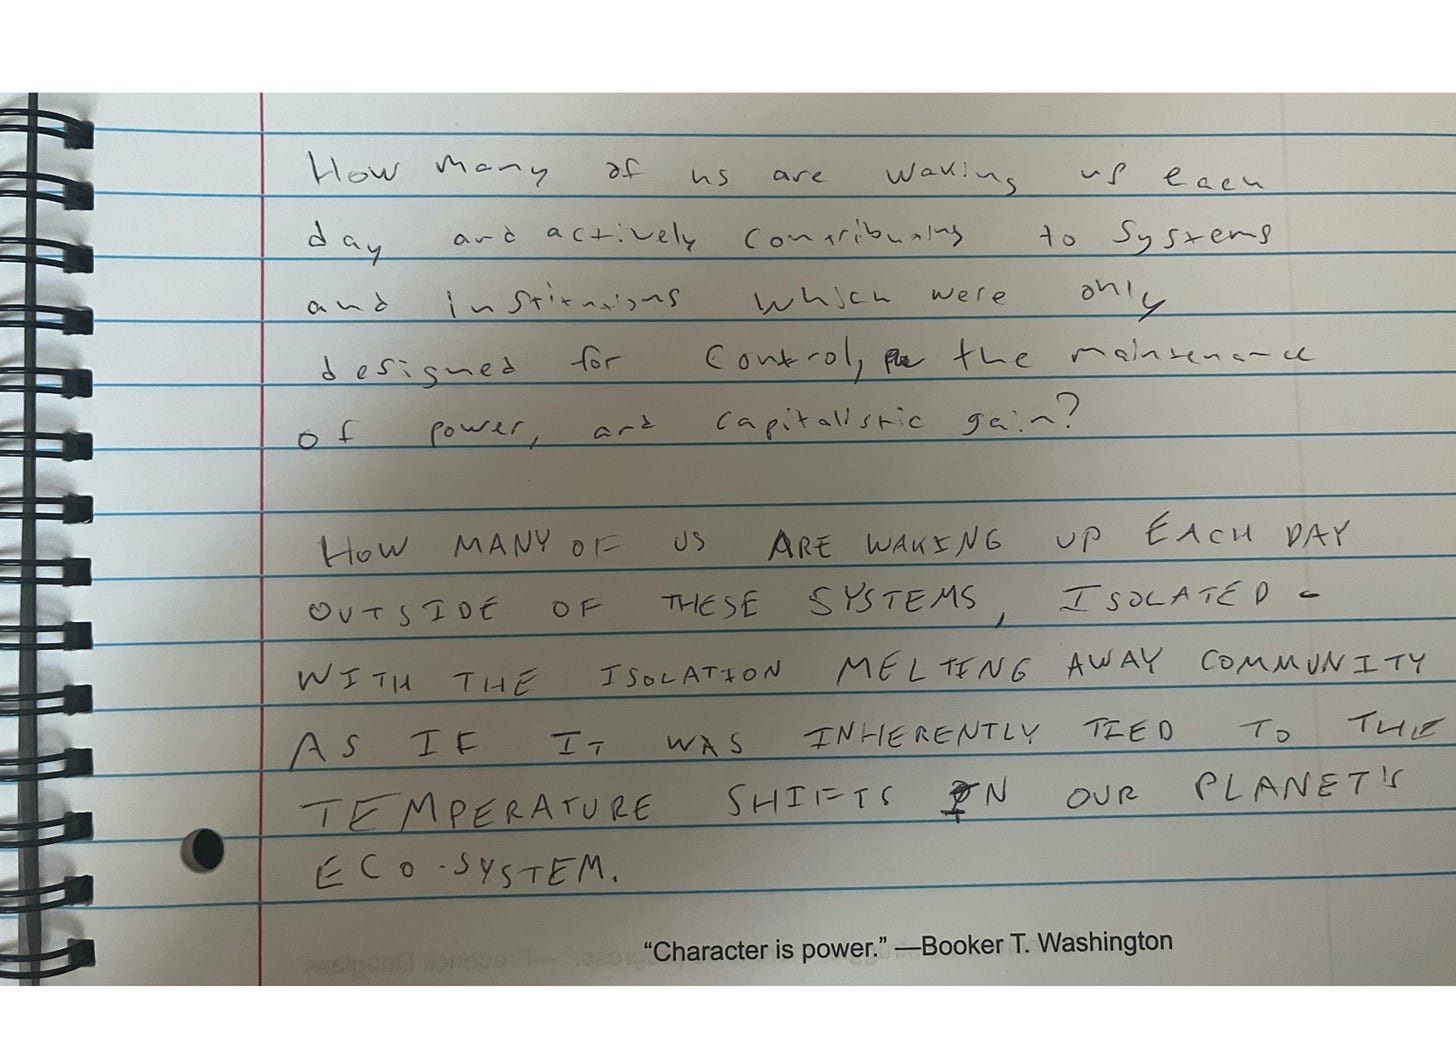 How many of us are waking up each
day and actively contributing to systems
and institutions which were only
designed for control, the maintenance
of power, and capitalistic gain?
HOW MANY OF US ARE WAKING UP EACH DAY
OUTSIDE OF THESE SYSTEMS, ISOLATED -
WITH THE ISOLATION MELTING AWAY COMMUNITY
AS IF IT WAS INHERENTLY TIED TO THE
TEMPERATURE SHIFTS IN OUR PLANET'S
ECO-SYSTEM.
“Character is power.” —Booker T. Washington